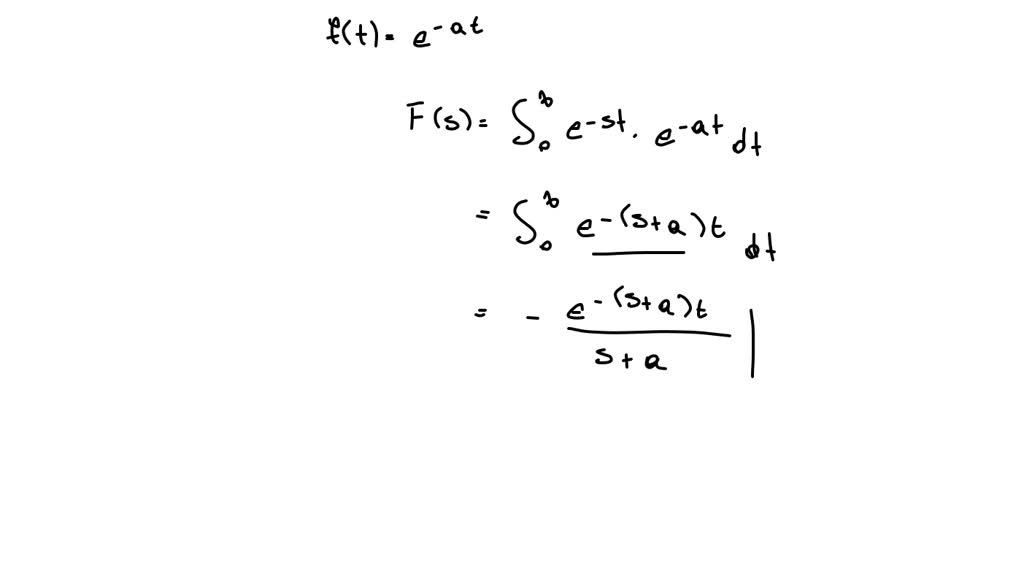 f(t) = e^{-at}
F(s) = ∫_0^∞ e^{-st} · e^{-at} dt
= ∫_0^∞ e^{-(s+a)t} dt
= - \frac{e^{-(s+a)t}}{s+a} |